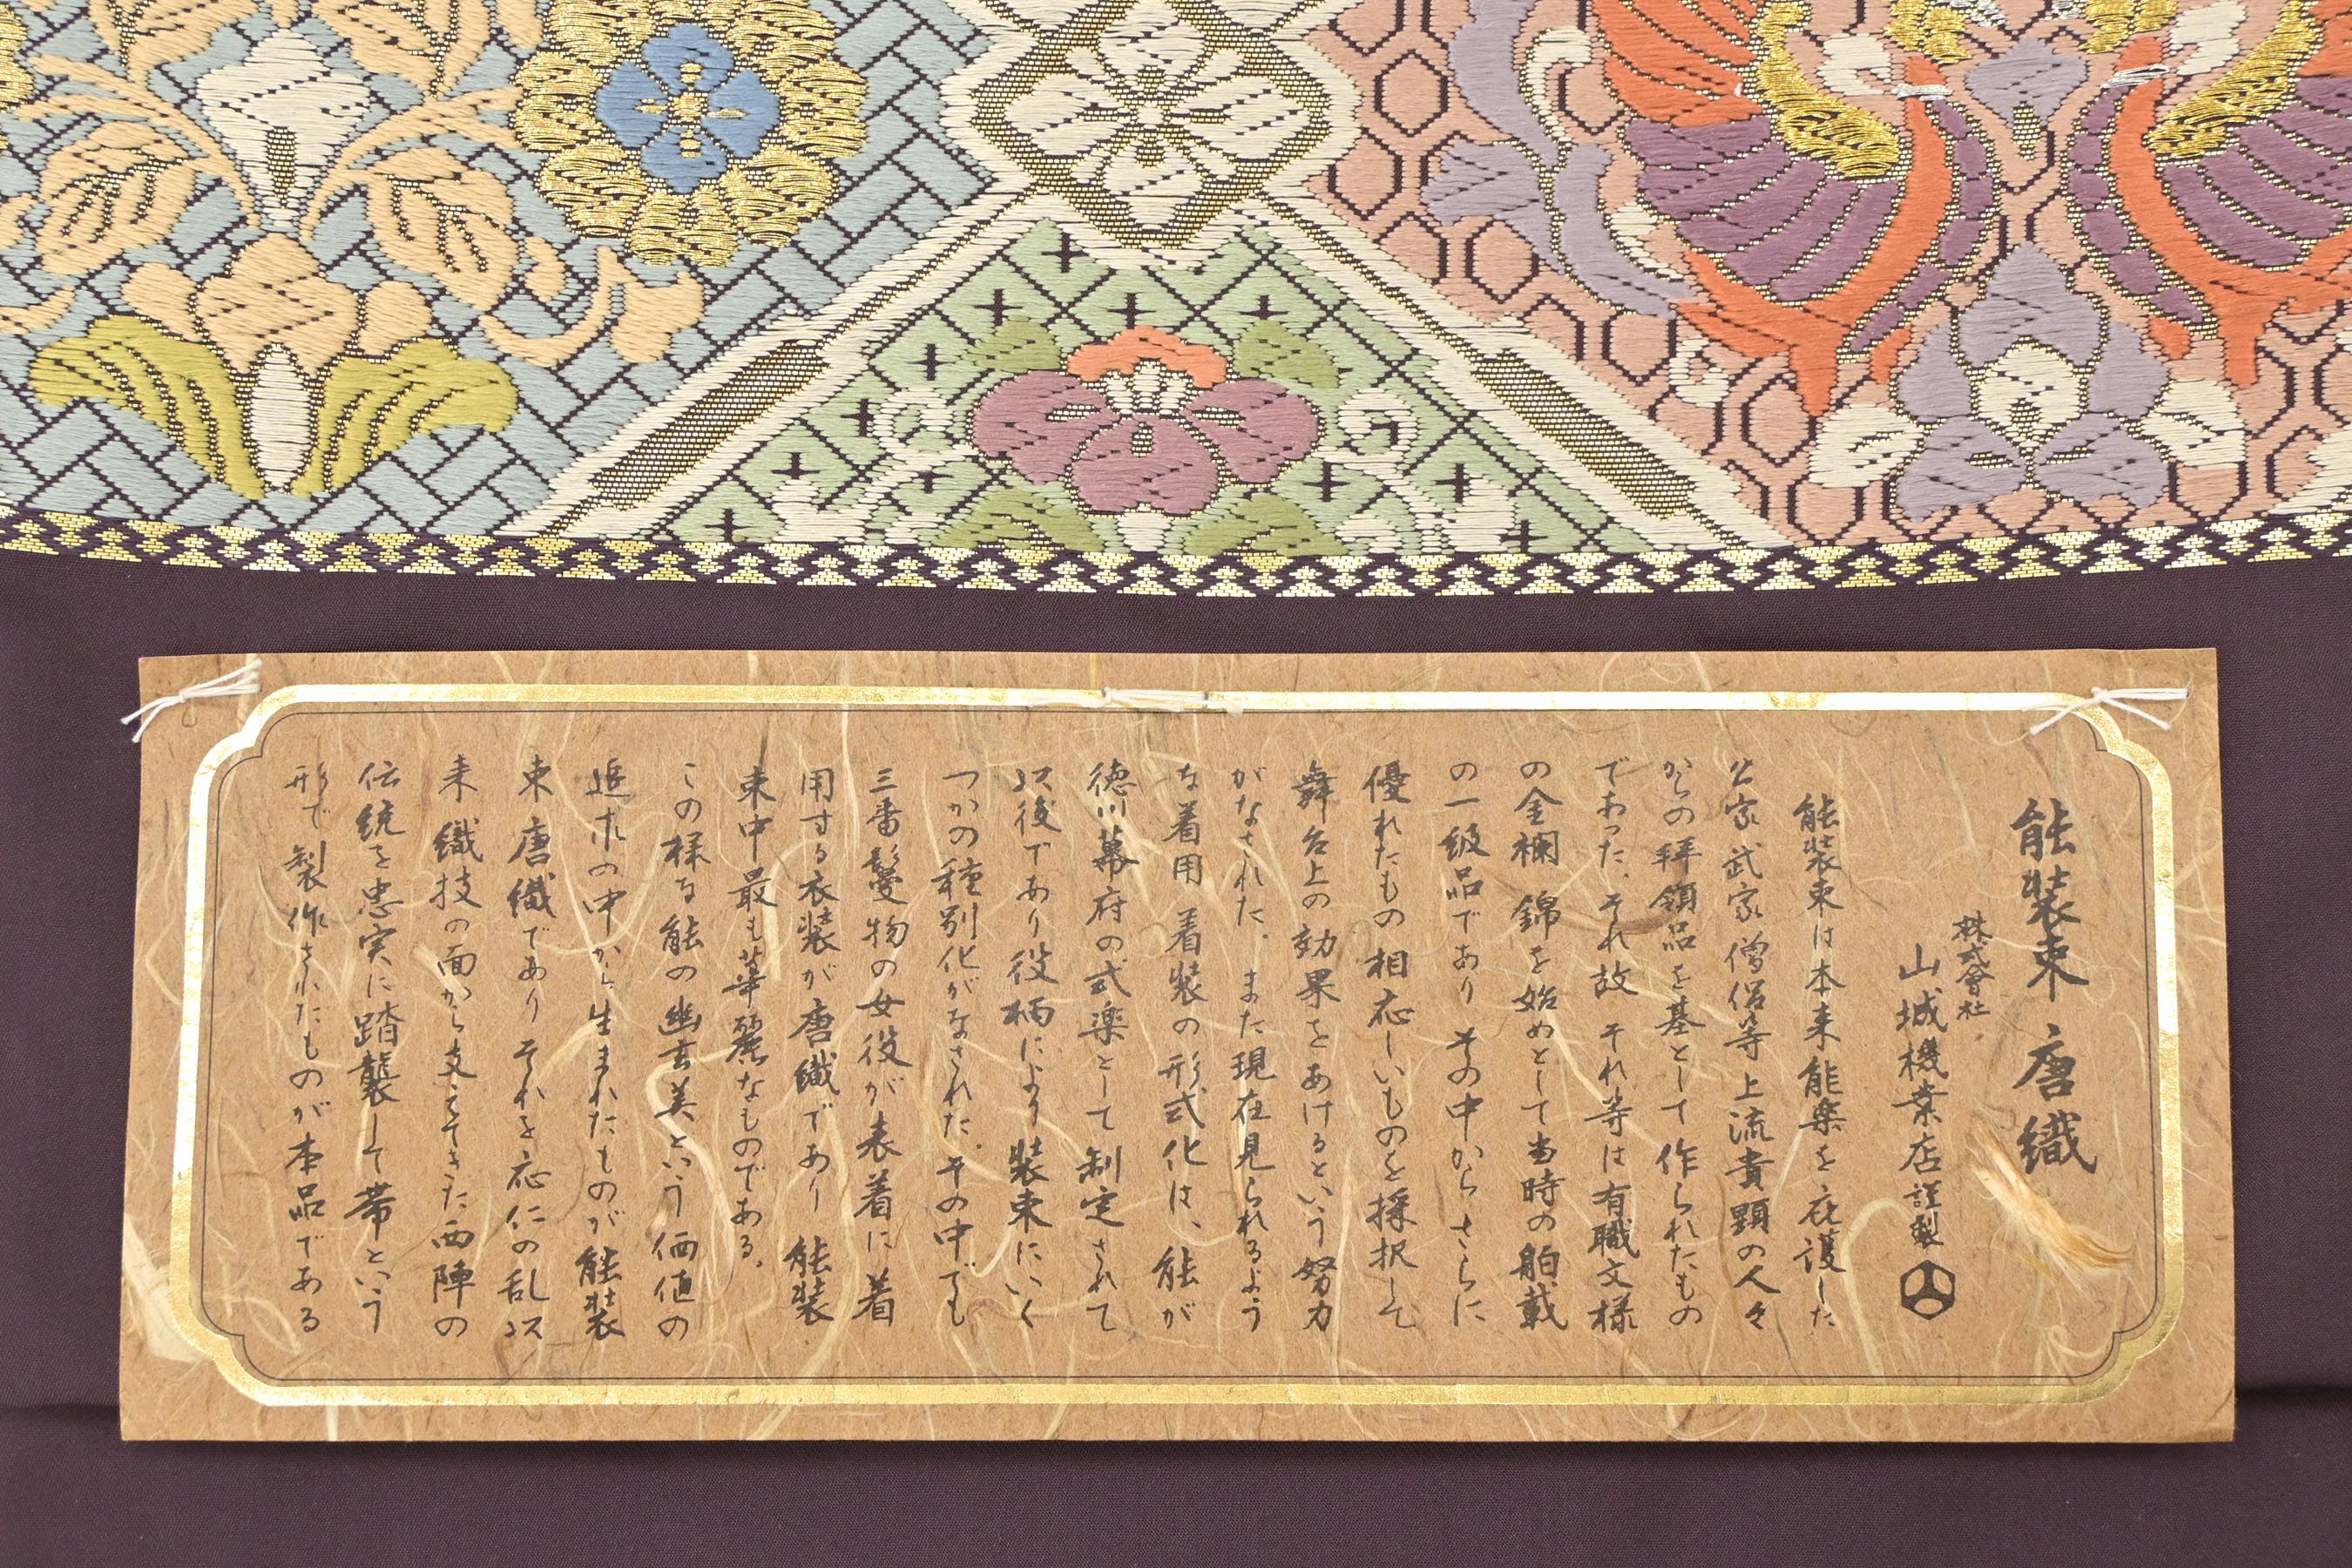 能装束 唐織
株式會社
山城機業店謹製
能装束は本来能楽を庇護した
公家武家僧侶等上流貴顕の人々
からの拝領品を基として作られたもの
であった。それ故 それ等は有職文様
の金襴 錦を始めとして当時の舶載
の一級品であり その中からさらに
優れたもの相応しいものを採択して
舞台上の効果をあげるという努力
がなされた。また現在見られるよう
な着用 着装の形式化は、能が
徳川幕府の式楽として制定されて
以後であり役柄により装束にいく
つかの種別化がなされた。その中でも
三番鬘物の女役が表着に着
用する衣装が唐織であり 能装
束中最も華麗なものである。
この様な能の幽玄美という価値の
追求の中から生まれたものが能装
束唐織であり それを応仁の乱以
来織技の面から支えてきた西陣の
伝統を忠実に踏襲して帯という
形で製作されたものが本品である